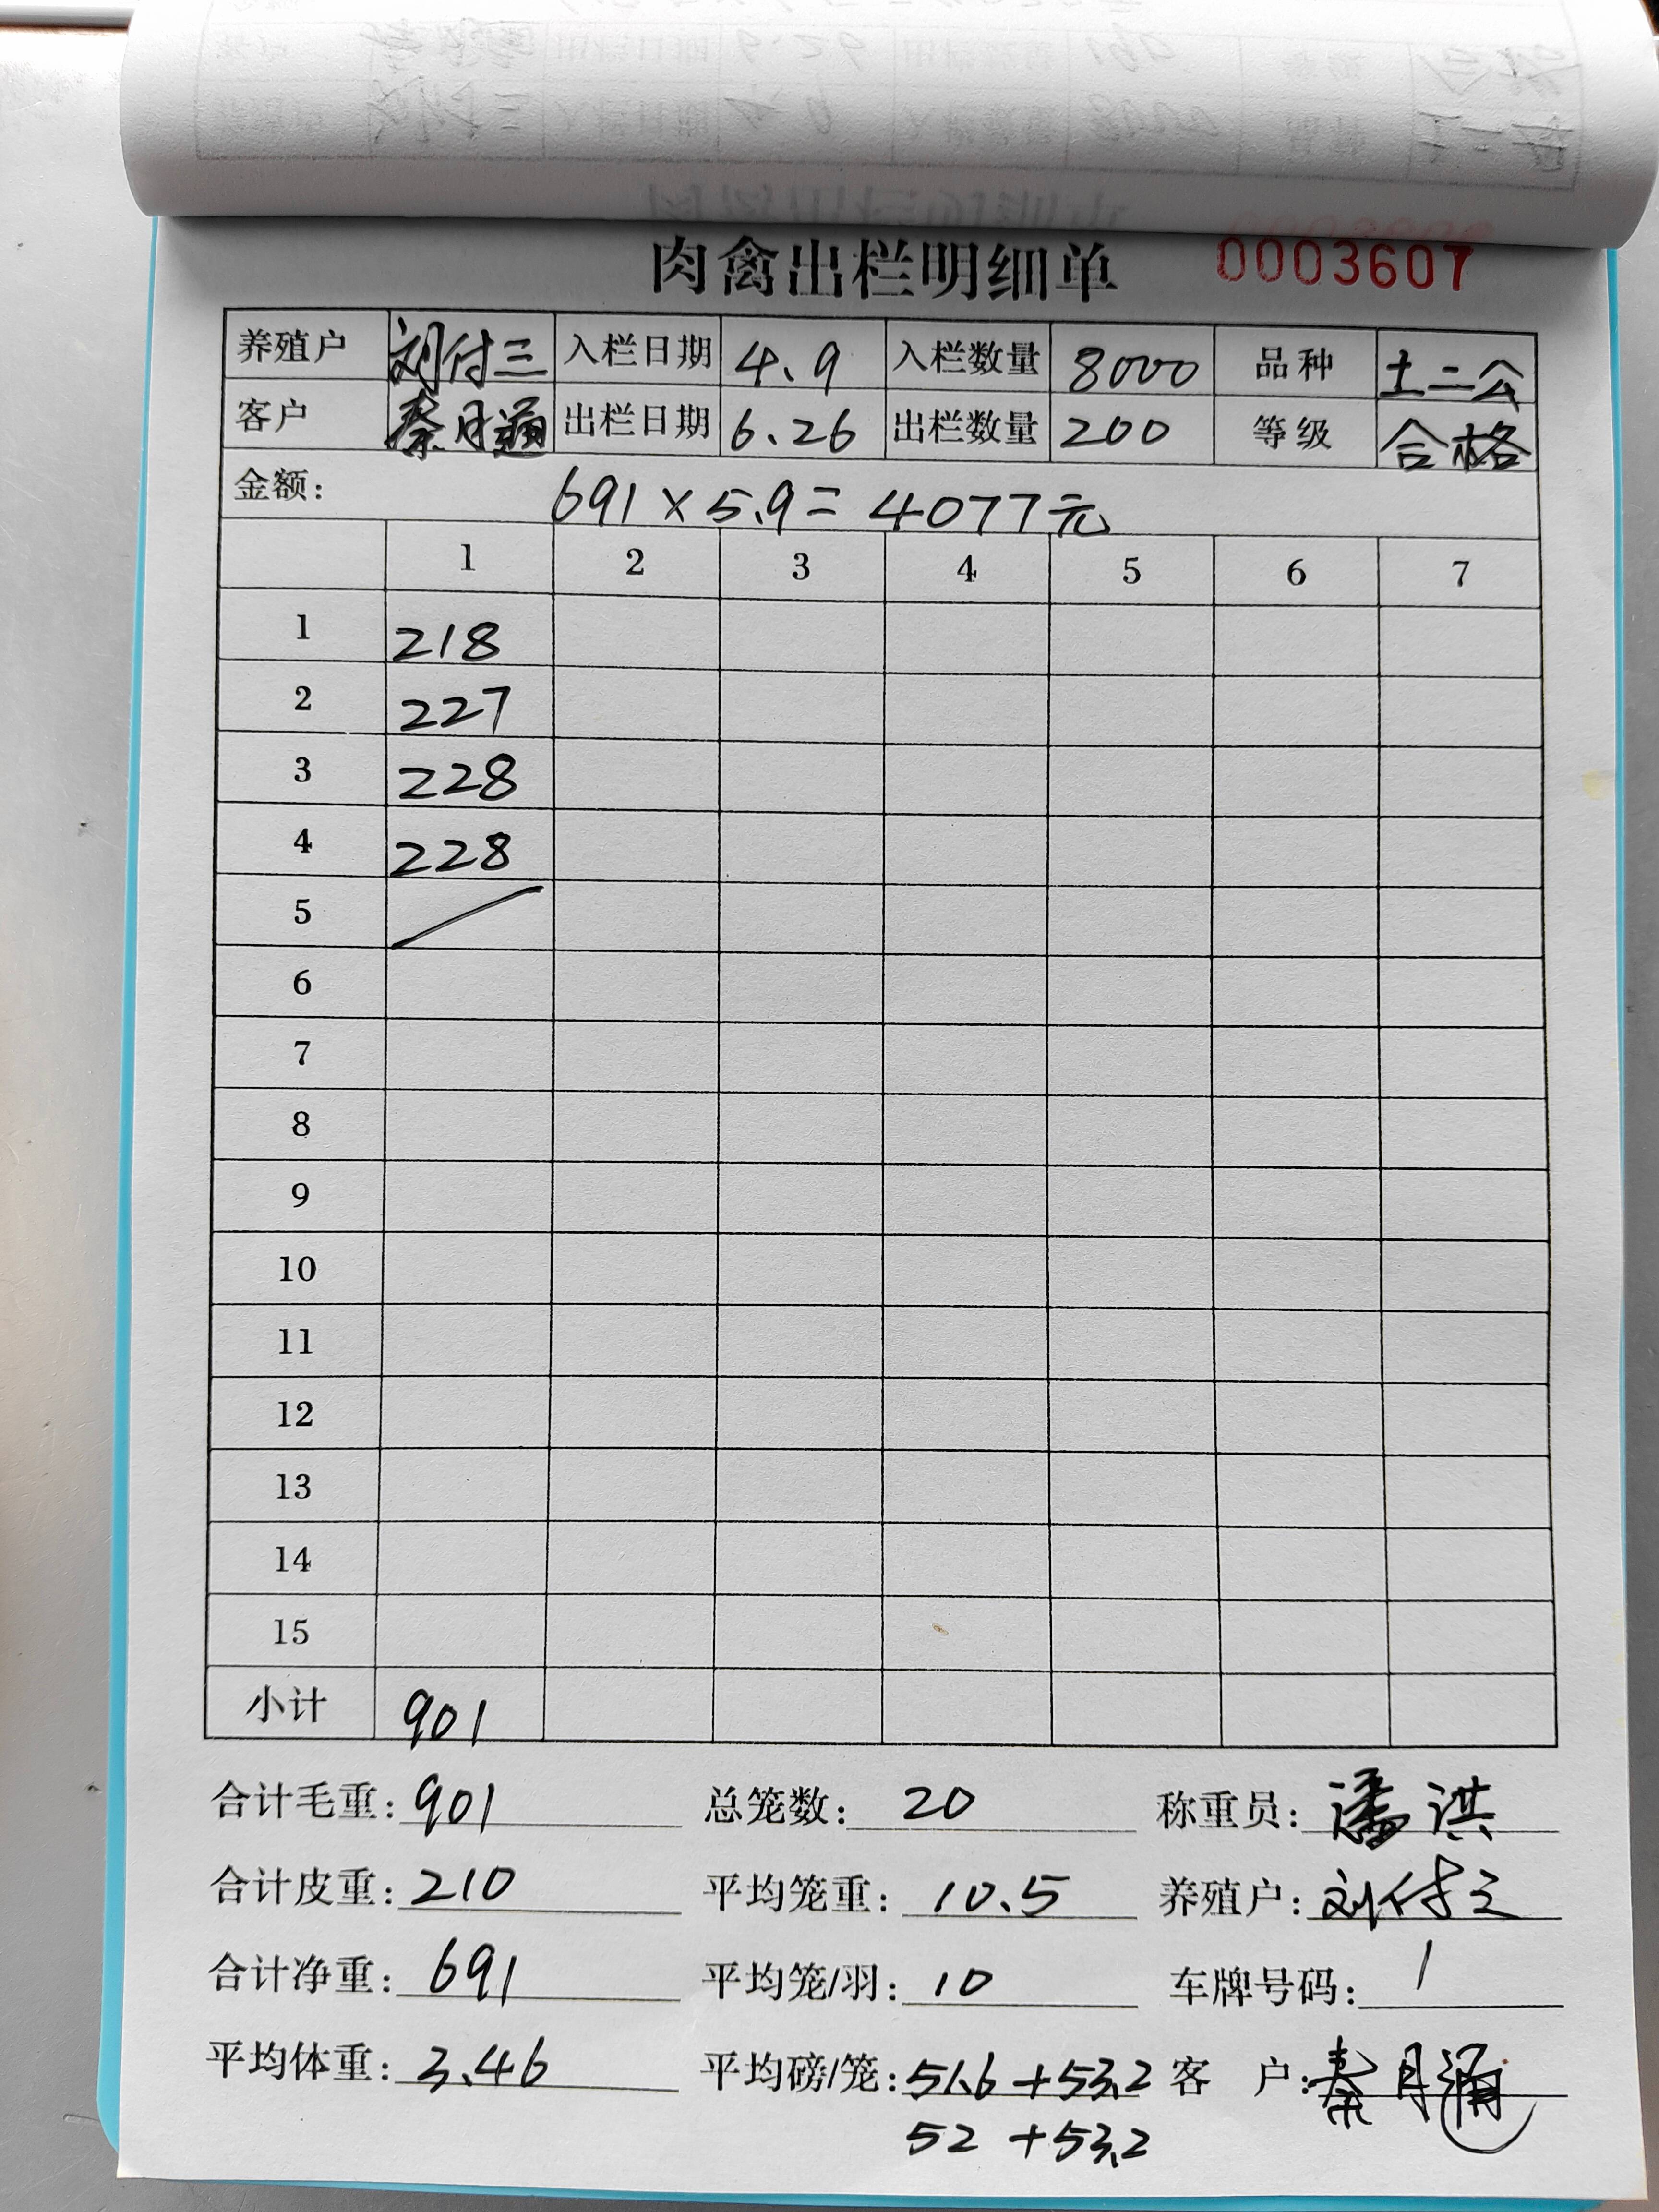 肉禽出栏明细单 0003607
养殖户 刘付三 入栏日期 4.9 入栏数量 8000 品种 土二公
客户 秦月涌 出栏日期 6.26 出栏数量 200 等级 合格
金额: 691×5.9=4077元
1 2 3 4 5 6 7
1 218
2 227
3 228
4 228
5
6
7
8
9
10
11
12
13
14
15
小计 901
合计毛重: 901 总笼数: 20 称重员: 潘洪
合计皮重: 210 平均笼重: 10.5 养殖户: 刘付三
合计净重: 691 平均笼/羽: 10 车牌号码: 1
平均体重: 3.46 平均磅/笼: 51.6+53.2 客 户: 秦月涌
52 +53.2